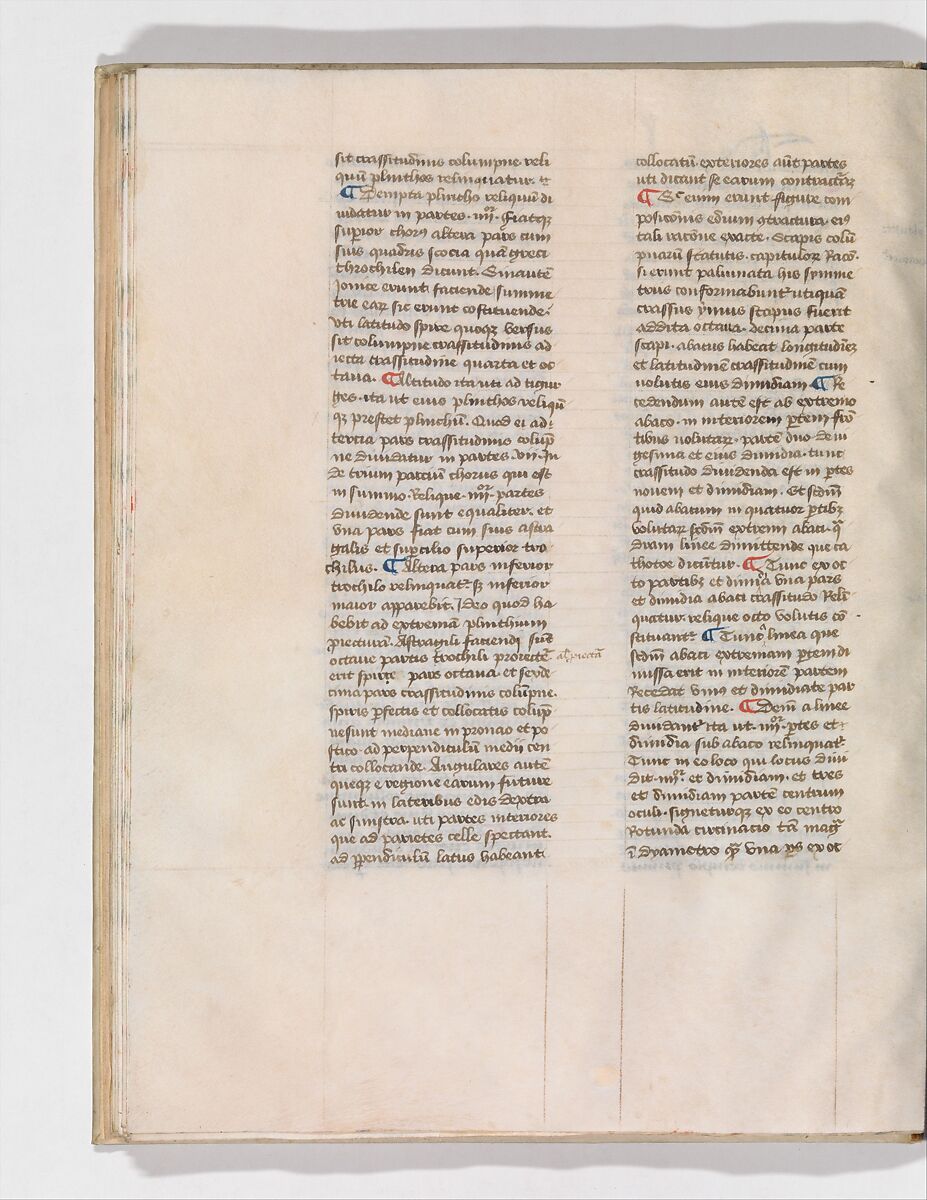 sit crassitudinis columpne. reli
quũ plinthos relinquatur.
¶ Dempta plintho reliquũ di
uidatur in partes .iiiior. fiatqz
superior thorus altera pars cum
suis quadris scocia quã greci
throchilen dicunt. Sin autẽ
Ionice erunt faciende summe
trie earz sic erunt costituende.
Vti latitudo spire quoqz versus
sit columpne crassitudinis ad
iecta crassitudine quarta et oc
taua. ¶ Altitudo ita uti ad tigur
ges. ita ut eius plinthos reliqũ
qz prestet plinthũ. Quod ei ad
tercia pars crassitudinis colũp
ne diuidatur in partes .vii. In
de trium parciũ thorus qui est
in summo. Relique .iiiior. partes
diuidende sunt equaliter. et
vna pars fiat cum suis astra
galis et supercilio superior tro
chilus. ¶ Altera pars inferior
trochilo relinquatr. sz inferior
maior apparebit. Ideo quod ha
bebit ad extremã plinthium
proiecturã. Astragili faciendi sũt
octaue partis trochili proiectẽ
proiectã
erit spire pars octaua. et sexde
cima pars crassitudinis colũpne.
Spiris perfectis et collocatis colũp
ne sunt mediane in pronao et po
stico. ad perpendiculũ medij cen
tri collocande. Angulares autẽ
queqz e regione earum future
sunt. in lateribus edis dextra
ac sinistra. uti partes interiores
que ad parietes celle spectant.
ad perpendiculũ latus habeant
collocatũ. exteriores aũt partes
uti dicant se earum contracturã
¶ Sic enim erunt figure com
posicionis edium contractura. eius
tali racione exacte. Scapis colũ
pnarũ statutis. capitulorz Racio.
si erunt puluinata his symme
triis conformabuntr. uti quã
crassus ymus scapus fuerit
addita octaua. decima parte
scapi. abacus habeat longitudinez
et latitudinẽ crassitudinẽ cum
uolutis eius dimidiam. ¶ Re
cedendum autẽ est ab extremo
abaco. in interiorem partem frõ
tibus uolutarz. partẽ duo de vi
gesima et eius dimidia. tunc
crassitudo diuidenda est in partes
nouem et dimidiam. Et secdm̃
quid abatum in quatuor partibz
volutarz secdm̃ extremi abaci. qua
dram linee dimittende que ca
thetoe dicũtur. ¶ Tunc ex oc
to partibz et dimidia vna pars
et dimidia abaci crassitudo Relin
quatur. relique octo volutis cõ
stituantr. ¶ Tunc linea que
secdm̃ abaci extremam partem di
missa erit in interiorẽ partem
Recedat vnius et dimidiate par
tis latitudine. ¶ Deinde a linee
diuidantr ita ut .iiiior. partes et
dimidia sub abaco relinquatr.
Tunc in eo loco qui locus diui
dit .iiiior. et dimidiam. et tres
et dimidiam partẽ centrum
oculi. signeturqz ex eo centro
Rotunda circinacio tam magna
ĩ dyametro quam vna pars ex oc